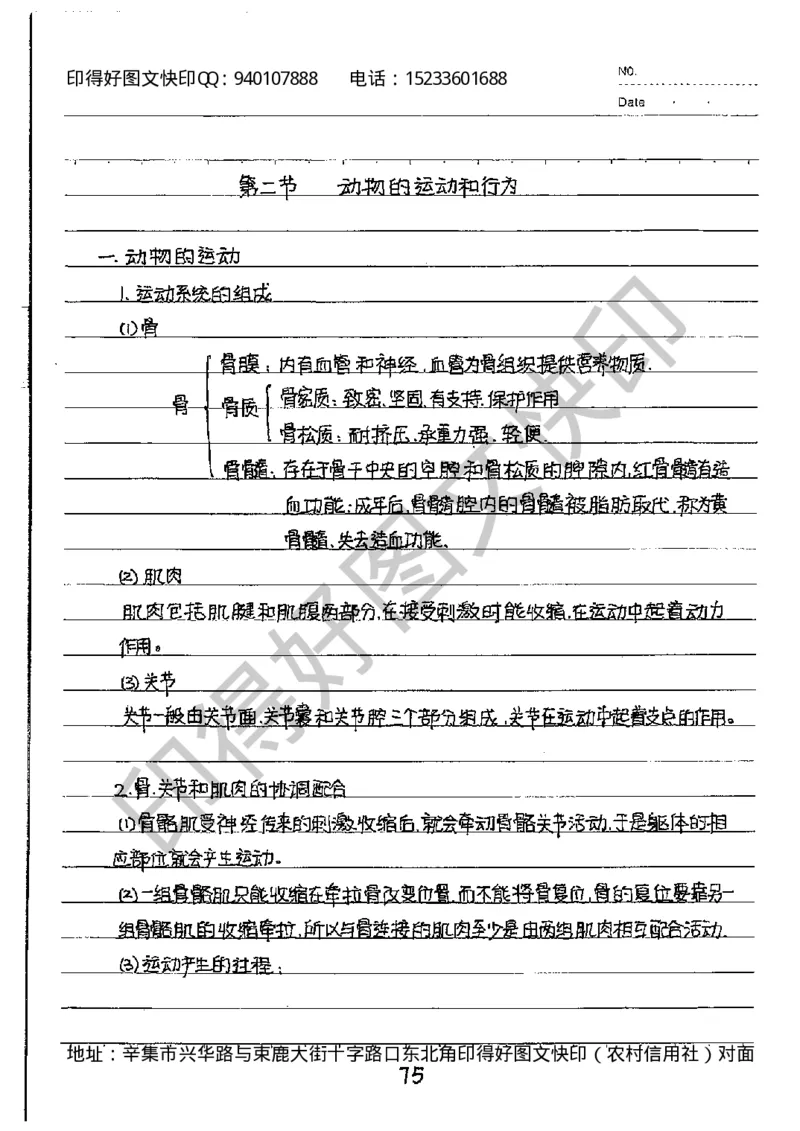 印得好图文快印QQ：940107888 电话：15233601688
NO.
Date
第二节 动物的运动和行为
一.动物的运动
1.运动系统的组成
(1)骨
骨膜：内有血管和神经.血管为骨组织提供营养物质.
骨 骨质 骨密质：致密.坚固.有支持.保护作用
骨松质：耐挤压.承重力强.轻便.
骨髓：存在于骨干中央的空腔和骨松质的腔隙内,红骨髓有造
血功能;成年后,骨髓腔内的骨髓被脂肪取代.称为黄
骨髓.失去造血功能.
(2)肌肉
肌肉包括肌腱和肌腹两部分,在接受刺激时能收缩.在运动中起着动力
作用。
(3)关节
关节一般由关节面.关节囊和关节腔三个部分组成,关节在运动中起着支点的作用。
2.骨.关节和肌肉的协调配合
(1)骨骼肌受神经传来的刺激收缩后,就会牵动骨骼关节活动,于是躯体的相
应部位就会产生运动。
(2)一组骨骼肌只能收缩在牵拉骨改变位置.而不能将骨复位,骨的复位要靠另一
组骨骼肌的收缩牵拉,所以与骨连接的肌肉至少是由两组肌肉相互配合活动.
(3)运动产生的过程：
地址：辛集市兴华路与束鹿大街十字路口东北角印得好图文快印（农村信用社）对面
75
印得好图文快印